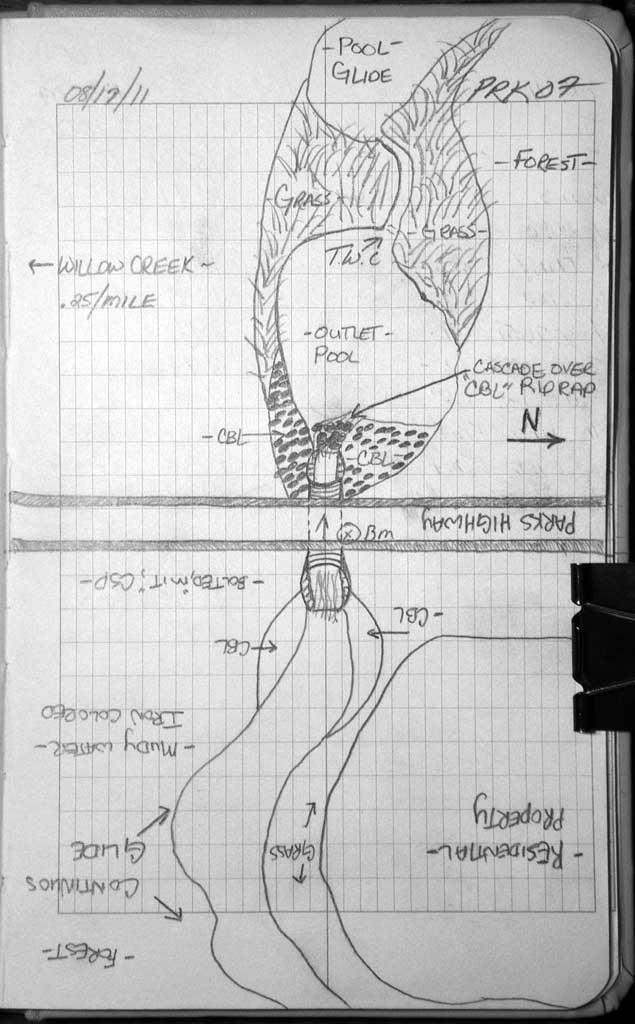 - POOL -
GLIDE
08/19/11
PRK07
- FOREST -
- GRASS -
- GRASS -
T.W.C
← WILLOW CREEK -
.25/MILE
- OUTLET -
POOL
CASCADE OVER
"CBL" RIP RAP
N
- CBL -
- CBL -
PARKS HIGHWAY
BM
- BOLTED, "MIT", CSP -
- CBL
CBL
- MUDY WATER -
IRON COLORED
- RESIDENTIAL -
PROPERTY
GRASS
CONTINUOS
GLIDE
- FOREST -